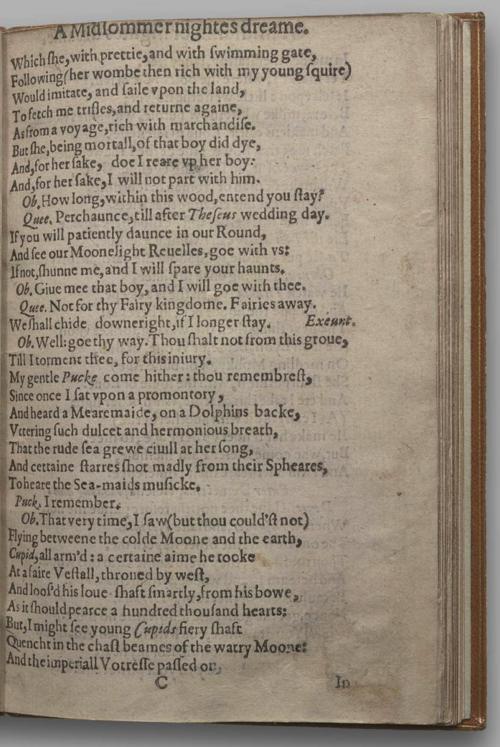 A Midsommer nightes dreame.
Which ſhe, with prettie, and with ſwimming gate,
Following (her wombe then rich with my young ſquire)
Would imitate, and ſaile vpon the land,
To fetch me trifles, and returne againe,
As from a voyage, rich with marchandiſe.
But ſhe, being mortall, of that boy did dye,
And, for her ſake, doe I reare vp her boy:
And, for her ſake, I will not part with him.
Ob. How long, within this wood, entend you ſtay?
Quee. Perchaunce, till after Theſeus wedding day.
If you will patiently daunce in our Round,
And ſee our Moonelight Reuelles, goe with vs:
If not, ſhunne me, and I will ſpare your haunts.
Ob. Giue mee that boy, and I will goe with thee.
Quee. Not for thy Fairy kingdome. Fairies away.
We ſhall chide downeright, if I longer ſtay. Exeunt.
Ob. Well: goe thy way. Thou ſhalt not from this groue,
Till I torment thee, for this iniury.
My gentle Pucke come hither: thou remembreſt,
Since once I ſat vpon a promontory,
And heard a Mearemaide, on a Dolphins backe,
Vttering ſuch dulcet and hermonious breath,
That the rude ſea grewe ciuill at her ſong,
And certaine ſtarres ſhot madly from their Spheares,
To heare the Sea-maids muſicke.
Puck. I remember.
Ob. That very time, I ſaw (but thou could'ſt not)
Flying betweene the colde Moone and the earth,
Cupid, all arm'd: a certaine aime he tooke
At a faire Veſtall, throned by weſt,
And loos'd his loue-ſhaft ſmartly, from his bowe,
As it ſhould pearce a hundred thouſand hearts:
But, I might ſee young Cupids fiery ſhaft
Quencht in the chaſt beames of the watry Moone:
And the imperiall Votreſſe paſſed on,
C In